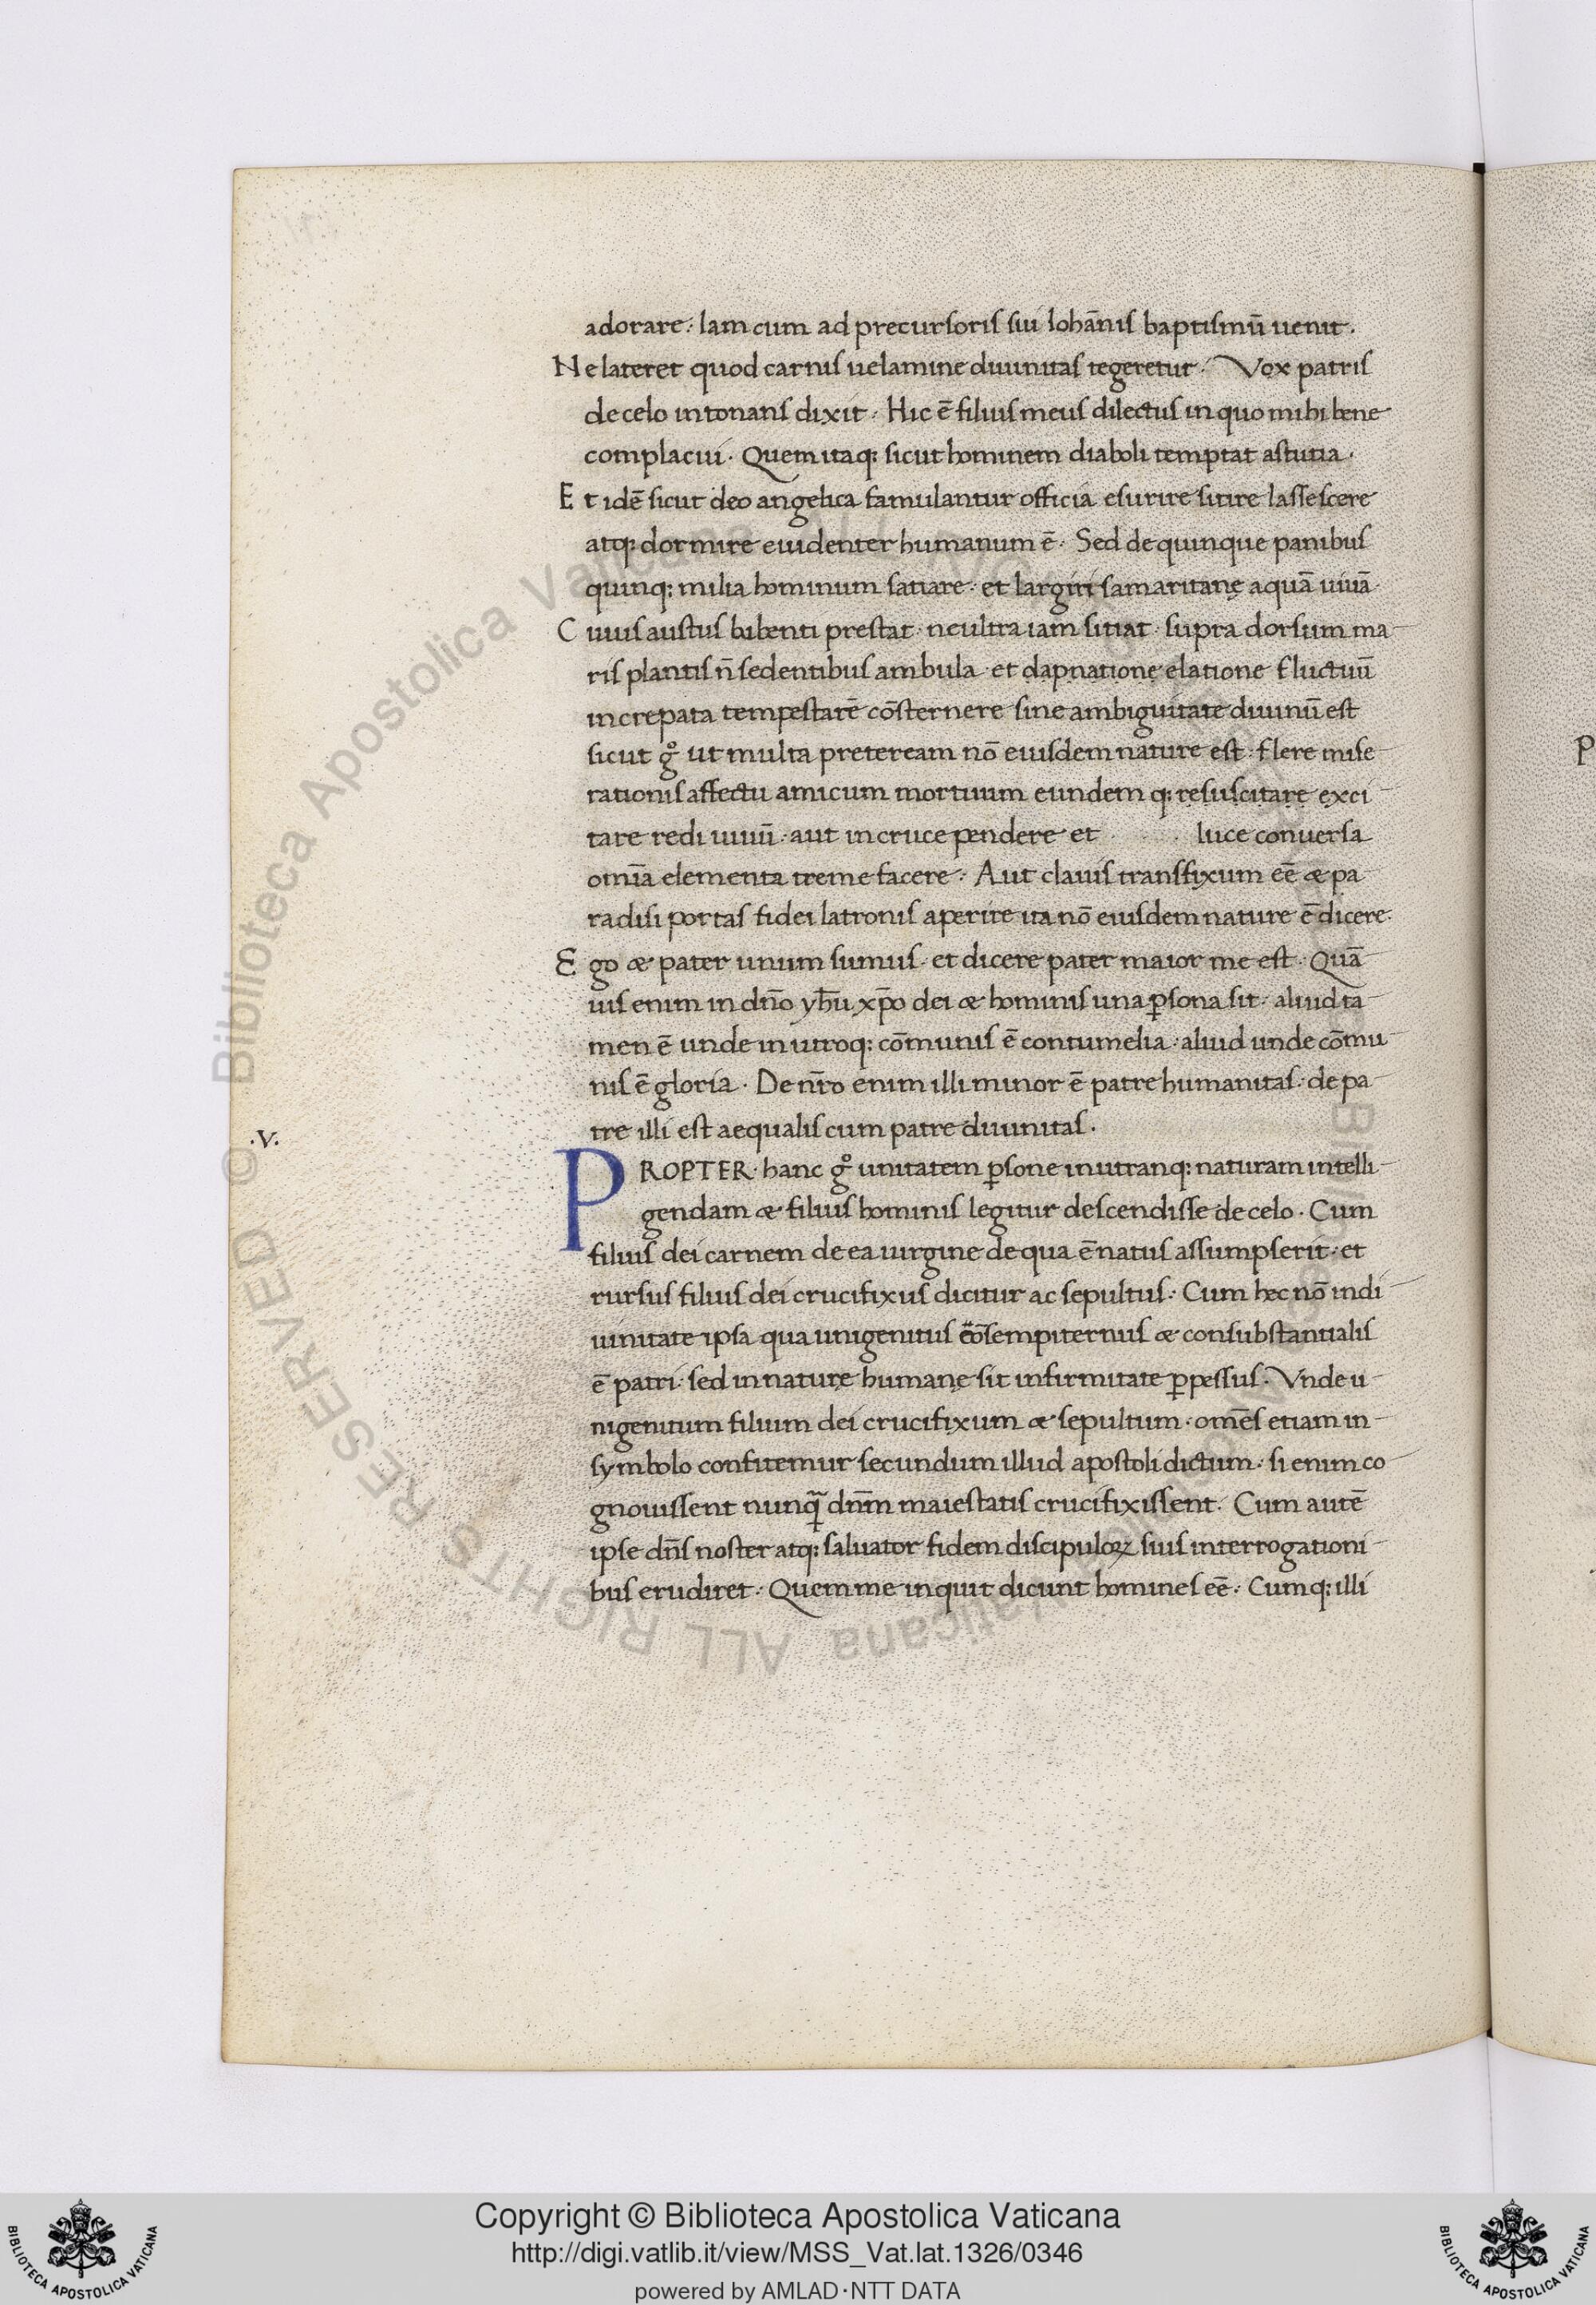 adorare. Iam cum ad precursoris sui Iohānis baptismū uenit.
Ne lateret quod carnis uelamine diuinitas tegeretur. Vox patris
de celo intonans dixit. Hic ē filius meus dilectus in quo mihi bene
complacui. Quem itaq: sicut hominem diaboli temptat astutia.
Et idē sicut deo angelica famulantur officia esurire sitire lassescere
atq: dormire euidenter humanum ē. Sed de quinque panibus
quinq: milia hominum satiare. et largiri samaritanę aquā uiuā.
Cuius austus bibenti prestat. ne ultra iam sitiat. supra dorsum ma
ris plantis n̄ sedentibus ambula. et dapnatione elatione fluctuū
increpata tempestatē cōsternere sine ambiguitate diuinū est
sicut gͦ ut multa preteream nō eiusdem nature est. flere mise
rationis affectu amicum mortuum eundem q: resuscitare exci
tare rediuiuū. aut in cruce pendere et luce conuersa
omīa elementa treme facere. Aut clauis transfixum eē & pa
radisi portas fidei latronis aperire ita nō eiusdem nature ē dicere.
Ego & pater unum sumus. et dicere pater maior me est. Quā
uis enim in dn̄o yhū xp̄o dei & hominis una ꝑsona sit. aliud ta
men ē unde in utroq: cōmunis ē contumelia. aliud unde cōmu
nis ē gloria. De nr̄o enim illi minor ē patre humanitas. de pa
tre illi est aequalis cum patre diuinitas.
.V.
PROPTER. hanc gͦ unitatem ꝑsone in utranq: naturam intelli
gendam & filius hominis legitur descendisse de celo. Cum
filius dei carnem de ea uirgine de qua ē natus assumpserit. et
rursus filius dei crucifixus dicitur ac sepultus. Cum hec nō in di
uinitate ipsa qua unigenitus cōsempiternus & consubstantialis
ē patri. sed in naturę humanę sit infirmitate ꝑpessus. Vnde u
nigenitum filium dei crucifixum & sepultum. omēs etiam in
symbolo confitemur secundum illud apostoli dictum. si enim co
gnouissent nunq̄ dn̄m maiestatis crucifixissent. Cum autē
ipse dn̄s noster atq: saluator fidem discipuloꝝ suis interrogationi
bus erudiret. Quem me inquit dicunt homines eē. Cumq: illi
P
© Biblioteca Apostolica Vaticana ALL RIGHTS RESERVED
Copyright © Biblioteca Apostolica Vaticana
http://digi.vatlib.it/view/MSS_Vat.lat.1326/0346
powered by AMLAD·NTT DATA
BIBLIOTECA APOSTOLICA VATICANA
BIBLIOTECA APOSTOLICA VATICANA